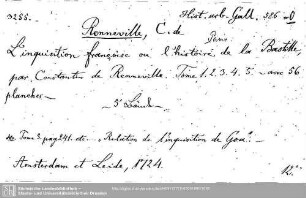 3288. Hist. urb. Gall. 326
Renneville, C. de
Paris
L'inquisition françoise ou l'histoire de la Bastille
par Constantin de Renneville. Tome 1. 2. 3. 4. 5. avec 56
planches
5 Bände
Tome 3. pag. 241. etc. Relation de l'inquisition de Goa.
Amsterdam et Leide, 1724.